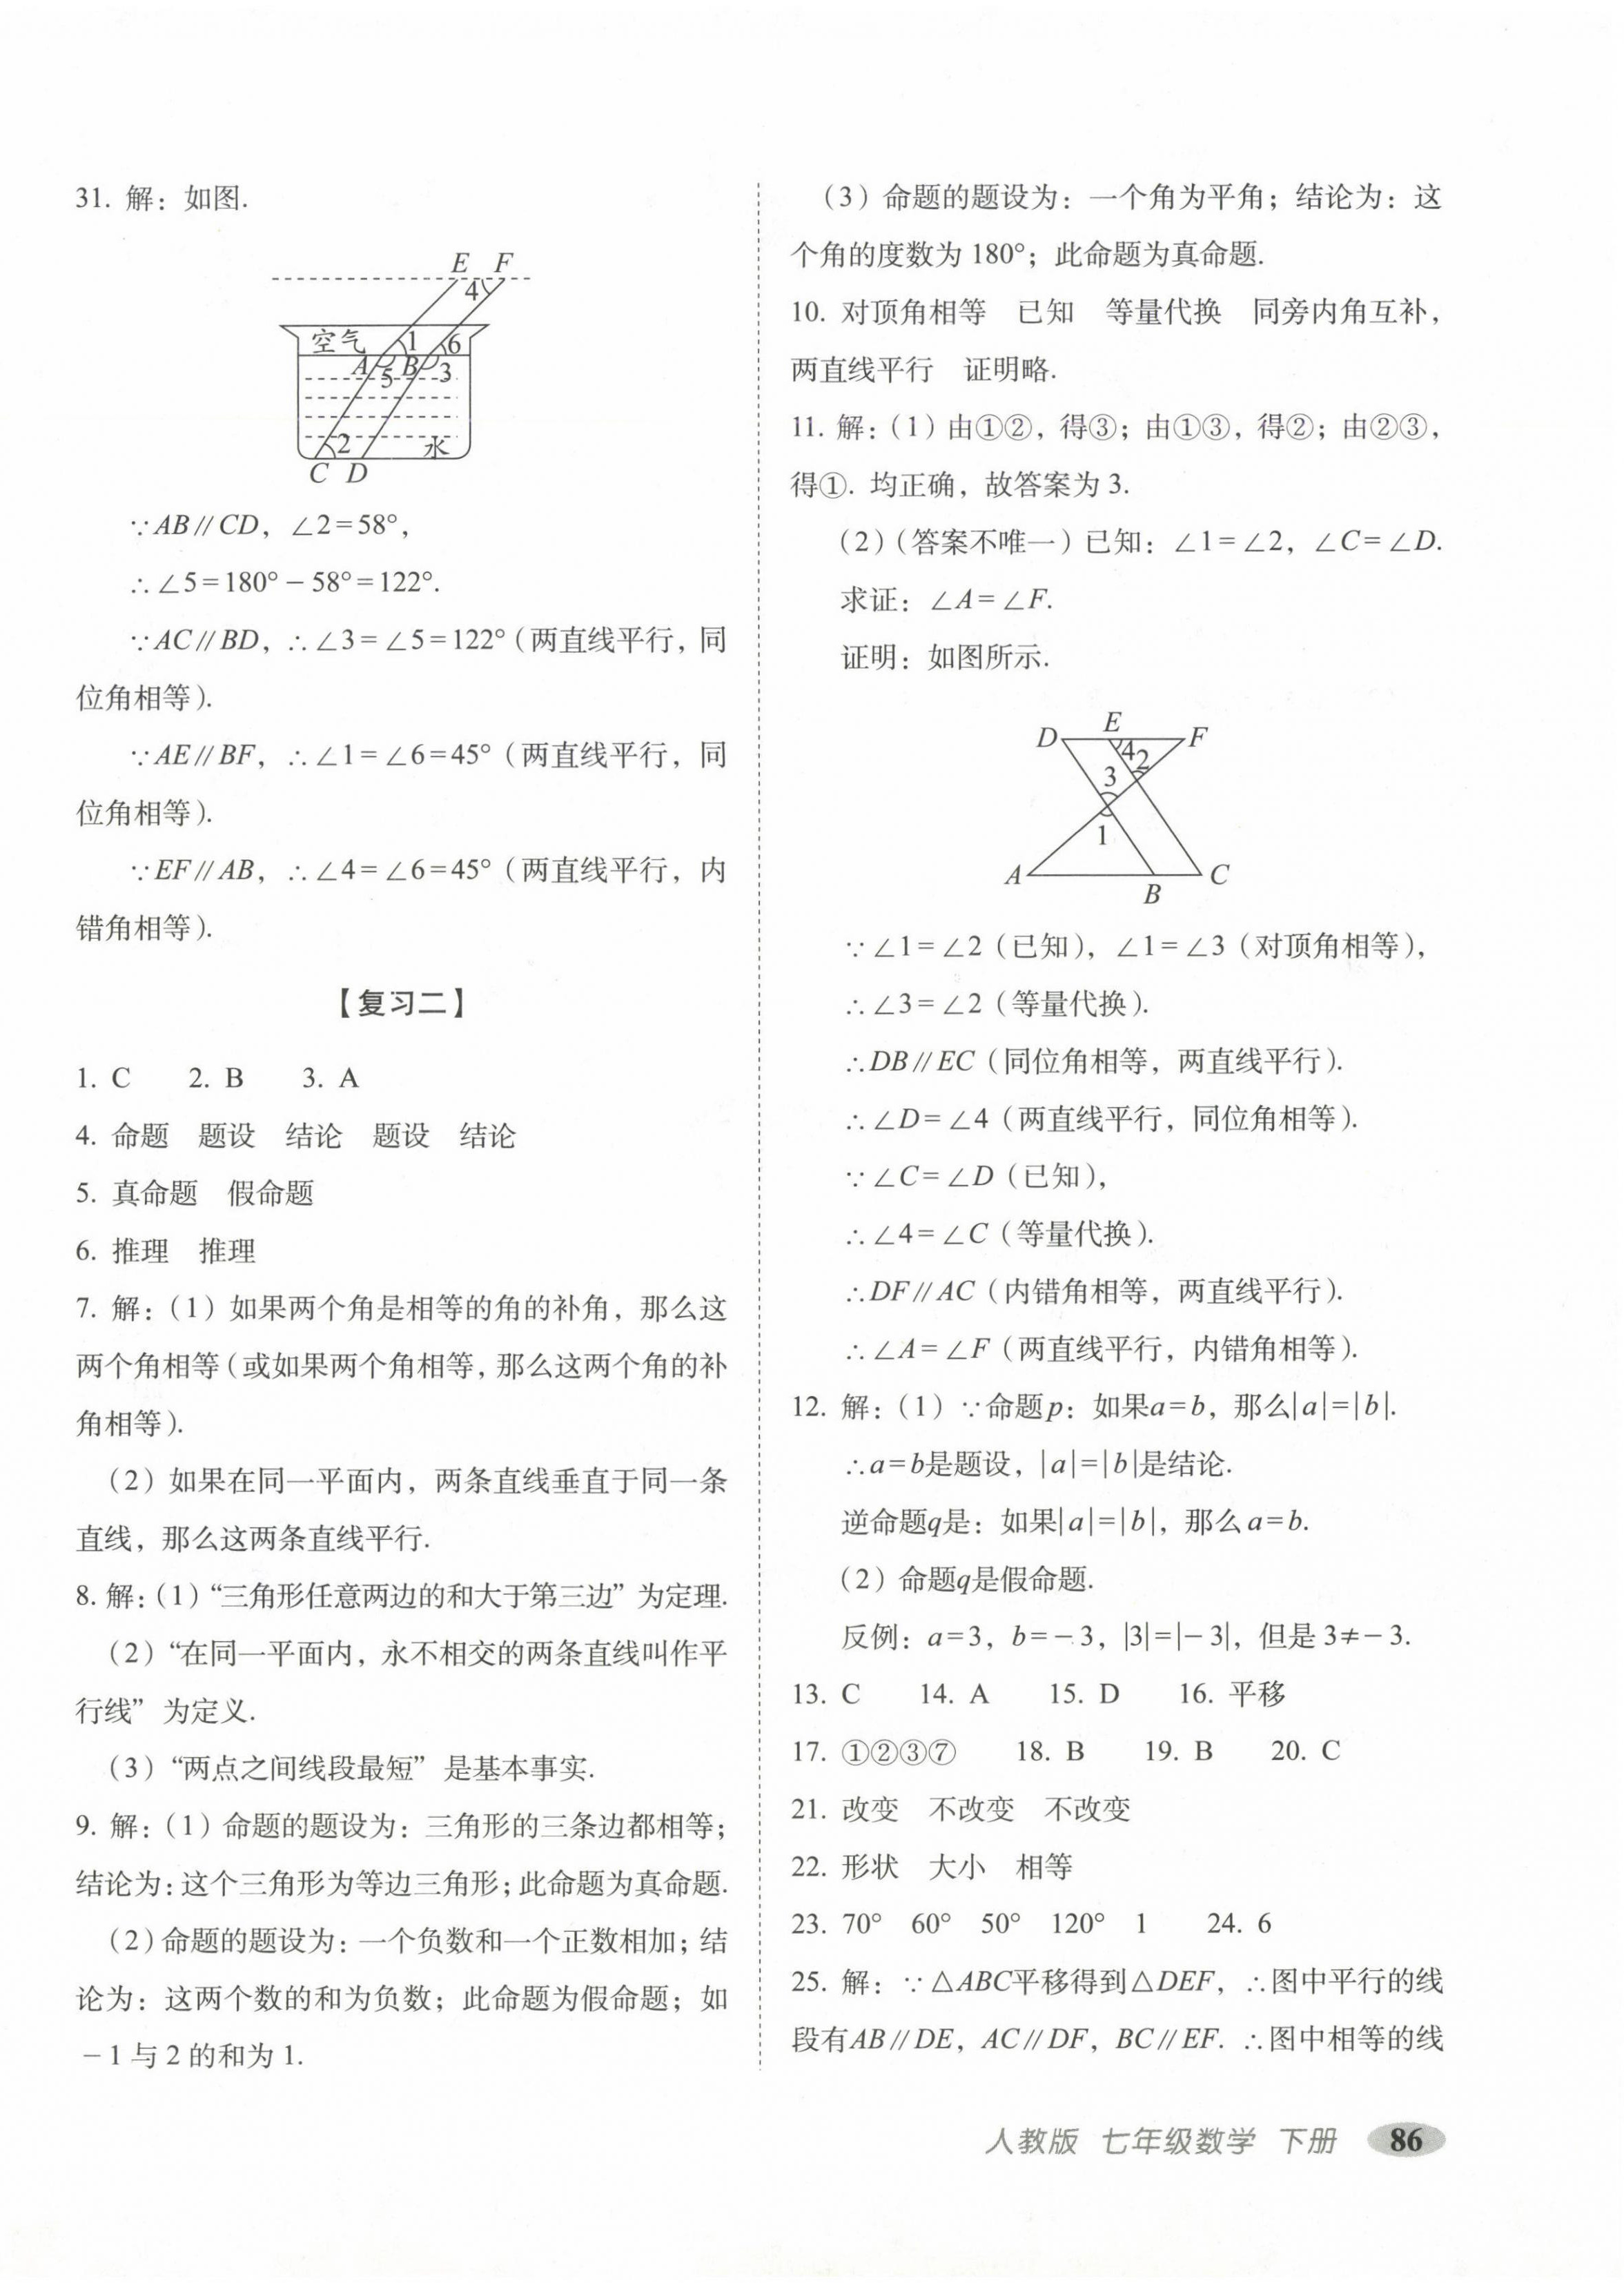 31. 解：如图.
E F
4
空气 1 6
A 5 B 3
2 水
C D
∵AB∥CD，∠2=58°，
∴∠5=180°－58°=122°.
∵AC∥BD，∴∠3=∠5=122°（两直线平行，同
位角相等）.
∵AE∥BF，∴∠1=∠6=45°（两直线平行，同
位角相等）.
∵EF∥AB，∴∠4=∠6=45°（两直线平行，内
错角相等）.
【复习二】
1. C 2. B 3. A
4. 命题 题设 结论 题设 结论
5. 真命题 假命题
6. 推理 推理
7. 解：（1）如果两个角是相等的角的补角，那么这
两个角相等（或如果两个角相等，那么这两个角的补
角相等）.
（2）如果在同一平面内，两条直线垂直于同一条
直线，那么这两条直线平行.
8. 解：（1）“三角形任意两边的和大于第三边”为定理.
（2）“在同一平面内，永不相交的两条直线叫作平
行线”为定义.
（3）“两点之间线段最短”是基本事实.
9. 解：（1）命题的题设为：三角形的三条边都相等；
结论为：这个三角形为等边三角形；此命题为真命题.
（2）命题的题设为：一个负数和一个正数相加；结
论为：这两个数的和为负数；此命题为假命题；如
－1与2的和为1.
（3）命题的题设为：一个角为平角；结论为：这
个角的度数为180°；此命题为真命题.
10. 对顶角相等 已知 等量代换 同旁内角互补，
两直线平行 证明略.
11. 解：（1）由①②，得③；由①③，得②；由②③，
得①. 均正确，故答案为3.
（2）（答案不唯一）已知：∠1=∠2，∠C=∠D.
求证：∠A=∠F.
证明：如图所示.
D E F
4 2
3
1
A B C
∵∠1=∠2（已知），∠1=∠3（对顶角相等），
∴∠3=∠2（等量代换）.
∴DB∥EC（同位角相等，两直线平行）.
∴∠D=∠4（两直线平行，同位角相等）.
∵∠C=∠D（已知），
∴∠4=∠C（等量代换）.
∴DF∥AC（内错角相等，两直线平行）.
∴∠A=∠F（两直线平行，内错角相等）.
12. 解：（1）∵命题p：如果a=b，那么|a|=|b|.
∴a=b是题设，|a|=|b|是结论.
逆命题q是：如果|a|=|b|，那么a=b.
（2）命题q是假命题.
反例：a=3，b=－3，|3|=|－3|，但是3≠－3.
13. C 14. A 15. D 16. 平移
17. ①②③⑦ 18. B 19. B 20. C
21. 改变 不改变 不改变
22. 形状 大小 相等
23. 70° 60° 50° 120° 1 24. 6
25. 解：∵△ABC平移得到△DEF，∴图中平行的线
段有AB∥DE，AC∥DF，BC∥EF. ∴图中相等的线
人教版 七年级数学 下册 86